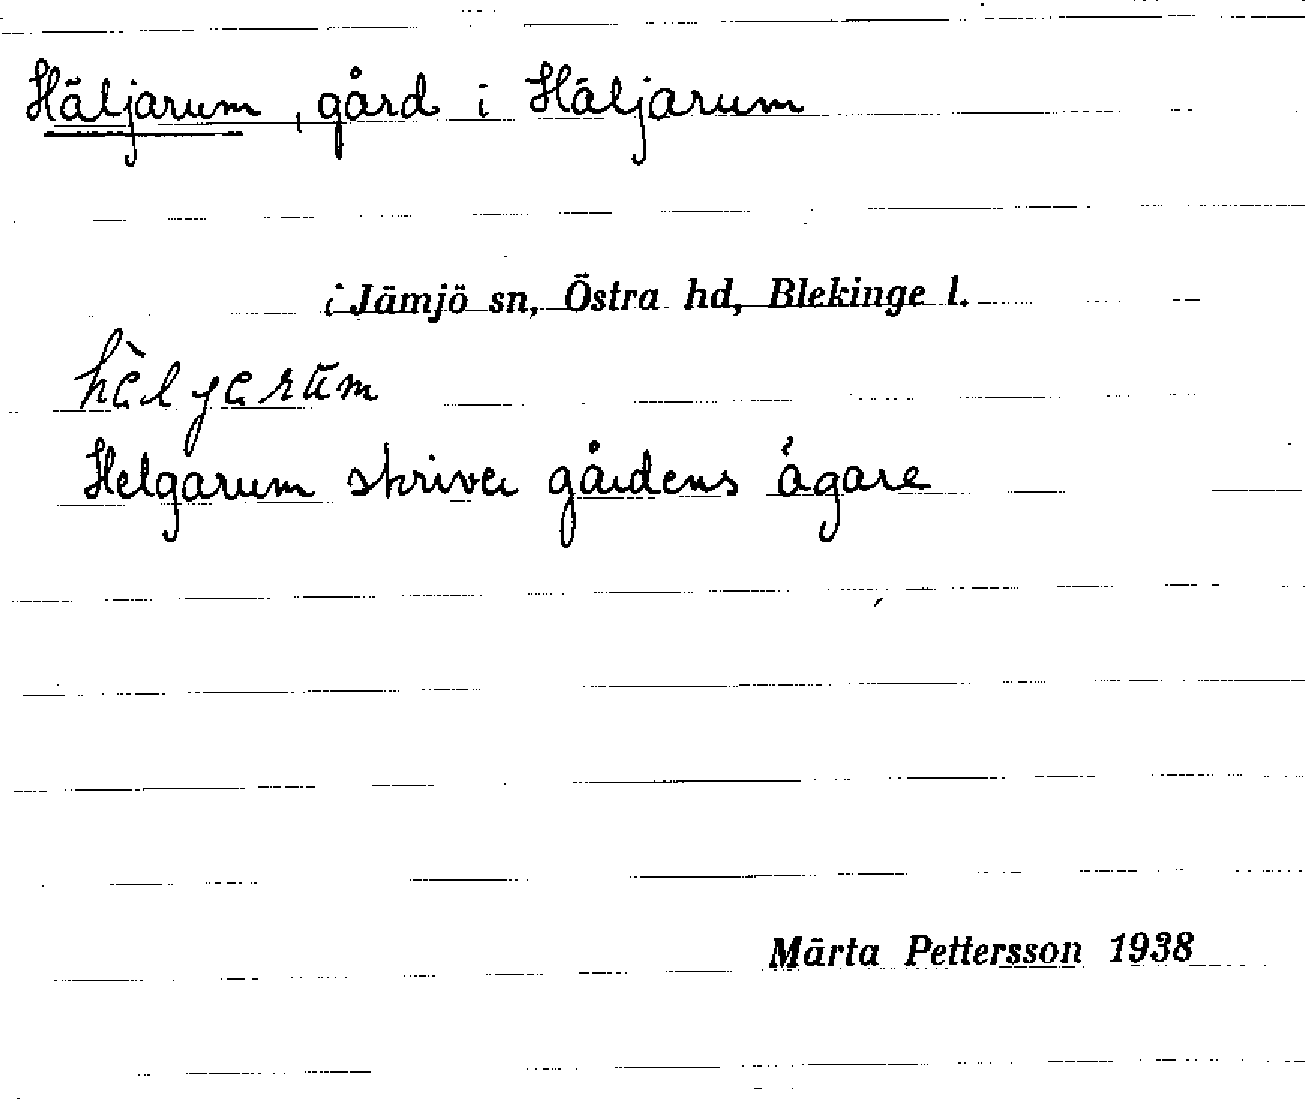 Häljarum, gård i Häljarum
i Jämjö sn, Östra hd, Blekinge l.
Helgarum skriver gårdens ägare
Märta Pettersson 1938